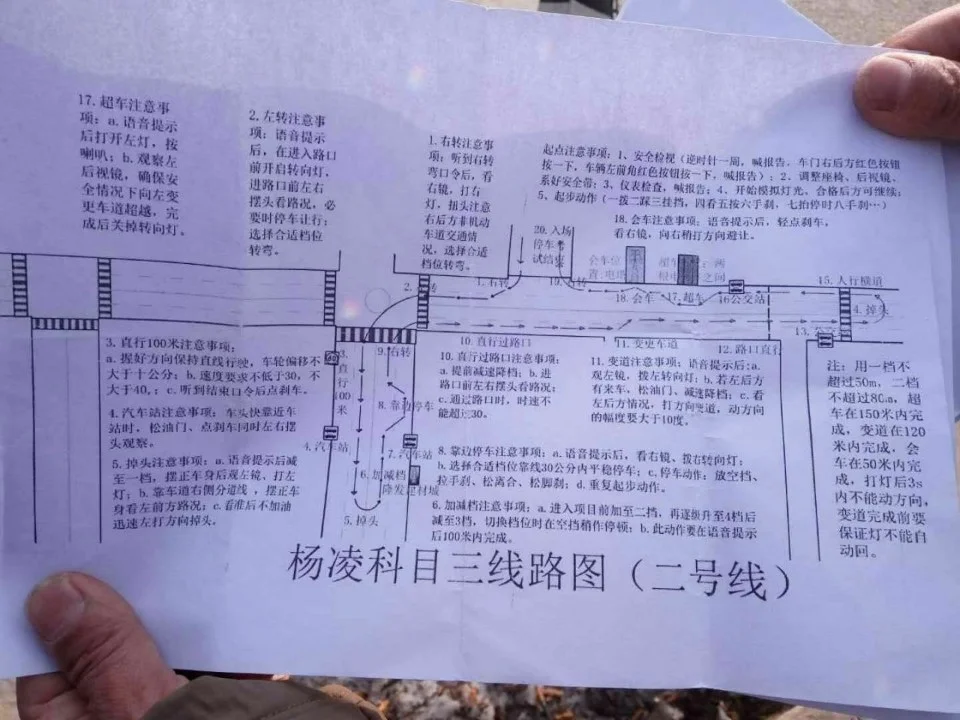 17. 超车注意事
项：a.语音提示
后打开左灯，按
喇叭；b.观察左
后视镜，确保安
全情况下向左变
更车道超越，完
成后关掉转向灯。
2.左转注意事
项：语音提示
后，在进入路口
前开启转向灯，
进路口前左右
摆头看路况，必
要时停车让行；
选择合适档位
转弯。
1.右转注意事
项：听到右转
弯口令后，看
右镜，打右
灯，扭头注意
右后方非机动
车道交通情
况，选择合适
档位转弯。
起点注意事项：1、安全检视（逆时针一周，喊报告，车门右后方红色按钮
按一下，车辆左前角红色按钮按一下，喊报告）；2、调整座椅、后视镜、
系好安全带；3、仪表检查，喊报告；4、开始模拟灯光、合格后方可继续；
5、起步动作（一拨二踩三挂挡，四看五按六手刹，七抬停时八手刹…）
18.会车注意事项：语音提示后，轻点刹车，
看右镜，向右稍打方向避让。
20.入场
停车考
试结束
会车位
置：电塔
之间
2.左转
1.右转
19.右转
18.会车
17.超车
16公交站
15.人行横道
14.掉头
13.公交站
12.路口直行
11.变更车道
10.直行过路口
9.右转
3.
直
行
100
米
8.靠边停车
4.汽车站
7.汽车站
6.加减档
隆发建材城
5.掉头
3.直行100米注意事项：
a.握好方向保持直线行驶，车轮偏移不
大于十公分；b.速度要求不低于30，不
大于40，；c.听到结束口令后点刹车。
4.汽车站注意事项：车头快靠近车
站时，松油门、点刹车同时左右摆
头观察。
5.掉头注意事项：a.语音提示后减
至一档，摆正车身后观左镜，打左
灯；b.靠车道右侧分道线，摆正车
身看左前方路况；c.看准后不加油
迅速左打方向掉头。
10.直行过路口注意事项：
a.提前减速降档；b.进
路口前左右摆头看路况；
c.通过路口时，时速不
能超过30。
11.变道注意事项：语音提示后；a.
观左镜，拨左转向灯；b.若左后方
有来车，松油门、减速降档；c.看
左后方情况，打方向变道，动方向
的幅度要大于10度。
8.靠边停车注意事项：a.语音提示后，看右镜，拨右转向灯；
b.选择合适档位靠线30公分内平稳停车；c.停车动作：放空挡、
拉手刹、松离合、松脚刹；d.重复起步动作。
6.加减档注意事项：a.进入项目前加至二档，再逐级升至4档后
减至3档，切换档位时在空挡稍作停顿；b.此动作要在语音提示
后100米内完成。
注：用一档不
超过50m，二档
不超过80m，超
车在150米内完
成，变道在120
米内完成，会
车在50米内完
成，打灯后3s
内不能动方向，
变道完成前要
保证灯不能自
动回。
杨凌科目三线路图（二号线）